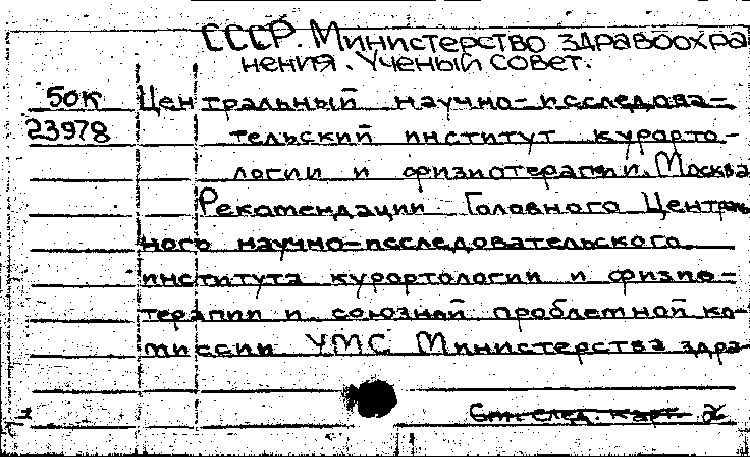 СССР. Министерство здравоохра
нения. Ученый совет.
50К Центральный научно-исследова-
23978 тельский институт курорто-
логии и физиотерапии. Москва
Рекомендации Головного Централь
ного научно-исследовательского
института курортологии и физио-
терапии и союзной проблемной ко-
миссии УМС Министерства здра-
См. след. карт. 2